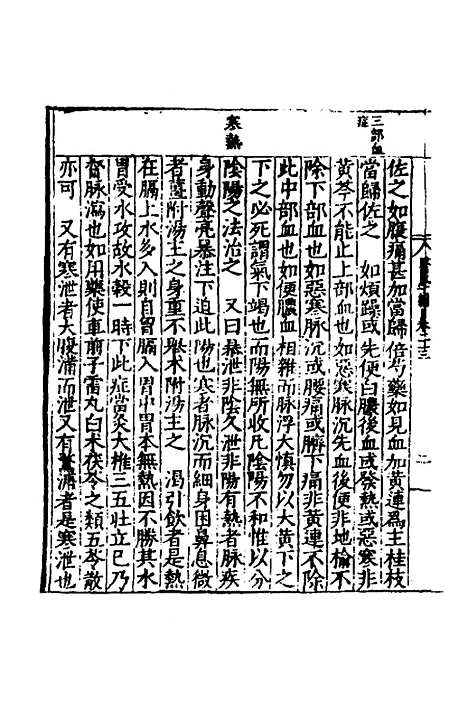 三部血
症
佐之如腹痛甚加當歸倍芍藥如見血加黄連爲主桂枝
當歸佐之　如煩躁或先便白膿後血或發熱或惡寒非
黄芩不能止上部血也如惡寒脉沉先血後便非地榆不
除下部血也如惡寒脉沉或腰痛或臍下痛非黄連不除
此中部血也如便膿血相雜而脉浮大慎勿以大黄下之
下之必死謂氣下竭也而陽無所收凡陰陽不和惟以分
寒熱
陰陽之法治之　又曰暴泄非陰久泄非陽有熱者脉疾
身動聲亮暴注下迫此陽也寒者脉沉而細身困鼻息微
者薑附湯主之身重不舉术附湯主之　渴引飲者是熱
在膈上水多入則自胃膈入胃中胃本無熱因不勝其水
胃受水攻故水穀一時下此症當灸大椎三五壯立已乃
督脉瀉也如用藥使車前子雷丸白术茯苓之類五苓散
亦可　又有寒泄者大腹滿而泄又有鶩溏者是寒泄也